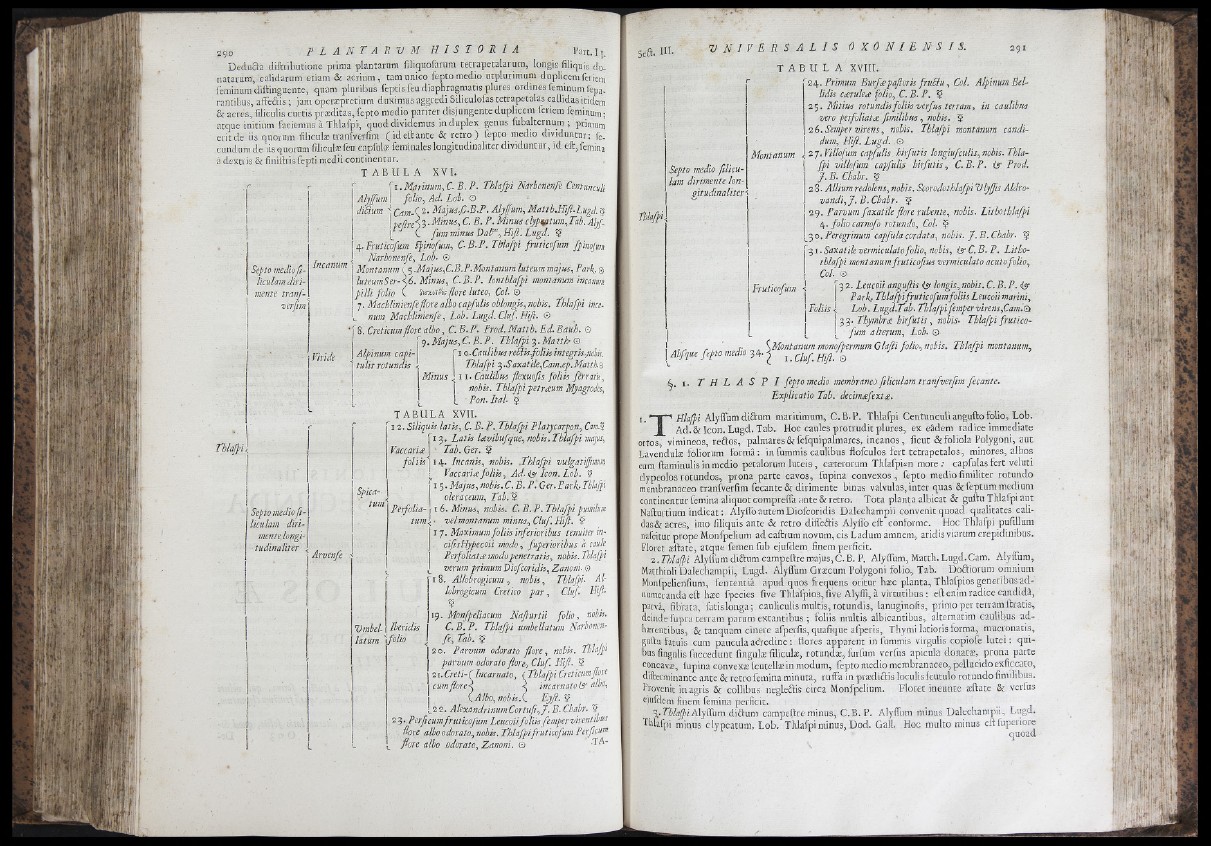 290 PLANTARUM HISTORIA Part. II.
Deducta distributione prima plantarum siliquosarum tetrapetalarum, longis siliquis do-
natarum, calidarum etiam & acrium, tam unico septo medio utplurimum duplicem seriem
seminum distinguente, quam pluribus septis seu diaphragmatis plures ordines seminum sepa-
rantibus, affectis; jam operæpretium duximus aggredi Siliculosas tetrapetolas callidas itidem
& acres, siliculis curtis præditas, septo medio pariter disjungente duplicem seriem seminum;
atque initium faciemus à Thlaspi, quod dividemus in duplex genus subalternum; primum
erit de iis quorum siliculæ transversim (id est ante & retro) septo medio dividuntur; se-
cundum de iis quorum siliculæ seu capsulæ seminales longitudinaliter dividuntur, id est, semina
à dextris & sinistris septi medii continentur.
TABULA XVI.
Thlaspi
Septo medio si-
liculam diri-
mente trans-
versim
Incanum
Alyssum
dictum
1. Marinum, C. B. P. Thlaspi Narbonense Centunculi
folio, Ad. Lob. ☉
Cam-
pestre
2. Majus, C.B.P. Alyssum, Matth. Hist. Lugd. ♃
3. Minus, C. B. P. Minus clypeatum, Tab. Alys-
sum minus Dal<sup>ii</sup>, Hist. Lugd. ♃
4. Fruticosum spinosum, C. B. P. Thlaspi fruticosum spinosum
Narbonense, Lob. ☉
Montanum
luteum Ser-
pilli folio
5. Majus, C.B.P. Montanum luteum majus, Park. ♃
6. Minus, C. B. P. Jonthlaspi montanum incanum
flore luteo, Col. ☉
7. Machliniense flore albo capsulis oblongis, nobis. Thlaspi inca-
num Machliniense, Lob. Lugd. Clus. Hist. ☉
Viride
8. Creticum flore albo, C. B. P. Prod. Matth. Ed. Bauh. ☉
Alpinum capi-
tulis rotundis
9. Majus, C. B. P. Thlaspi 3. Matth. ☉
Minus
10. Caulibus rectis foliis integris, nobis.
Thlaspi 3. Saxatile, Cam. ep. Matth. ♃
11. Caulibus flexuosis foliis serratis,
nobis. Thlaspi petræum Myagrodes,
Pon. Ital. ♃
TABULA XVII.
Septo medio si-
liculam diri-
mente longi-
tudinaliter
Arvense
12. Siliquis latis, C. B. P. Thlaspi Platycarpon, Cam. ♃
Spica-
tum
Vaccariæ
foliis
13. Latis lævibusque, nobis. Thlaspi majus,
Tab. Ger. ♃
14. Incanis, nobis. Thlaspi vulgatissimum
Vaccariæ foliis, Ad. & Icon. Lob. ♃
Perfolia-
tum
15. Majus, nobis, C. B. P. Ger. Park. Thlaspi
oleraceum, Tab. ♃
16. Minus, nobis. C. B. P. Thlaspi pumilum
vel montanum minus, Clus. Hist. ♃
17. Maximum foliis inferioribus tenuiter in-
cisis Hypecoii modo, superioribus à caule
Perfoliatæ modo penetratis, nobis. Thlaspi
verum primum Dioscoridis, Zanoni. ☉
Umbel-
latum
Iberidis
folio
18. Allobrogicum, nobis, Thlaspi Al-
lobrogicum Cretico par, Clus. Hist.
♃
19. Monspeliacum Nasturtii folio, nobis.
C. B. P. Thlaspi umbellatum Narbonen-
se, Tab. ♃
20. Parvum odorato flore, nobis. Thlaspi
parvum odorato flore, Clus. Hist. ♃
21. Creti-
cum flore
Incarnato,
Albo, nobis.
Thlaspi Creticum flore
incarnato & albo,
Eyst. ♃
22. Alexandrinum Cortusi, J. B. Chabr. ♃
23. Persicum fruticosum Leucoii foliis semper virentibus
flore albo odorato, nobis. Thlaspi fruticosum Persicum
flore albo odorato, Zanoni. ☉
TA-
Sect. III. UNIVERSALIS OXONIENSIS. 291
TABULA XVIII.
Thlaspi
Septo medio silicu-
lam dirimente lon-
gitudinaliter
Montanum
24. Primum Bursæ pastoris fructu, Col. Alpinum Bel-
lidis cæruleæ folio, C. B. P. ♃
25. Mitius rotundis foliis versus terram, in caulibus
vero perfoliatæ similibus, nobis. ♃
26. Semper virens, nobis. Thlaspi montanum candi-
dum, Hist. Lugd. ☉
27. Villosum capsulis hirsutis longiusculis, nobis. Thla-
spi villosum capsulis hirsutis, C. B. P. & Prod.
J. B. Chabr. ♃
28. Allium redolens, nobis. Scorodothlaspi Ulyssis Aldro-
vandi, J. B. Chabr. ♃
29. Parvum saxatile flore rubente, nobis. Lithothlaspi
4. folio carnoso rotundo, Col. ♃
30. Peregrinum capsula cordata, nobis. J. B. Chabr. ♃
Fruticosum
31. Saxatile vermiculato folio, nobis, & C. B. P. Litho-
thlaspi montanum fruticosius vermiculato acuto folio,
Col. ☉
Foliis
32. Leucoii angustis & longis, nobis. C. B. P. &
Park. Thlaspi fruticosum foliis Leucoii marini,
Lob. Lugd. Tab. Thlaspi semper virens, Cam. ☉
33. Thymbræ hirsutis, nobis. Thlaspi frutico-
sum alterum, Lob. ☉
Absque septo medio 34.
Montanum monospermum Glasti folio, nobis. Thlaspi montanum,
1. Clus. Hist. ☉
§. 1. THLASPI septo medio membraneo siliculam transversim secante.
Explicatio Tab. decimæsextæ.
1. THlaspi Alyssum dictum maritimum, C. B. P. Thlaspi Centunculi angusto folio, Lob.
Ad. & Icon. Lugd. Tab. Hoc caules protrudit plures, ex eâdem radice immediate
ortos, vimineos, rectos, palmares & sesquipalmares, incanos, sicut & foliola Polygoni, aut
Lavendulæ foliorum formâ: in summis caulibus flosculos fert tetrapetalos, minores, albos
cum staminulis in medio petalorum luteis, cæterorum Thlaspiωn more: capsulas fert veluti
clypeolos rotundos, pronâ parte cavos, supina convexos, septo medio similiter rotundo
membranaceo transversim secante & dirimente binas valvulas, inter quas & septum medium
continentur semina aliquot compressa ante & retro. Tota planta albicat & gustu Thlaspi aut
Nasturtium indicat: Alysso autem Dioscoridis Dalechampii convenit quoad qualitates cali-
das & acres, imo siliquis ante & retro dissectis Alysso est conforme. Hoc Thlaspi pusillum
nascitur prope Monspelium ad castrum novum, cis Ladum amnem, aridis viarum crepidinibus.
Floret æstate, atque semen sub ejusdem finem perficit.
2. Thlaspi Alyssum dictum campestre majus, C. B. P. Alyssum, Matth. Lugd. Cam. Alyssum,
Matthioli Dalechampii, Lugd. Alyssum Græcum Polygoni folio, Tab. Doctiorum omnium
Monspeliensium, sententiâ apud quos frequens oritur hæc planta, Thlaspios generibus ad-
numeranda est hæc species sive Thlaspios, sive Alyssi, à virtutibus: est enim radice candidâ,
parvâ, fibrata, satis longa; cauliculis multis, rotundis, lanuginosis, primo per terram stratis,
deinde supra terram parum extantibus; foliis multis albicantibus, alternatim caulibus ad-
hærentibus, & tanquam cinere aspersis, quasique asperis, Thymi latioris forma, mucronatis,
gustu fatuis cum paucula acredine: flores apparent in summis virgulis copiole lutei: qui-
bus singulis succedunt singulæ siliculæ, rotundæ, sursum versus apiculâ donatæ, prona parte
concavæ, supina convexæ scutellæ in modum, septo medio membranaceo, pellucido exsiccato,
disterminante ante & retro semina minuta, russa in prædictis loculis scutulo rotundo similibus.
Provenit in agris & collibus neglectis circa Monspelium. Floret ineunte æstate & versus
ejusdem finem semina perficit.
3. Thlaspi Alyssum dictum campestre minus, C. B. P. Alyssum minus Dalechampii, Lugd.
Thlaspi minus clypeatum, Lob. Thlaspi minus, Dod. Gall. Hoc multo minus est superiore
quoad